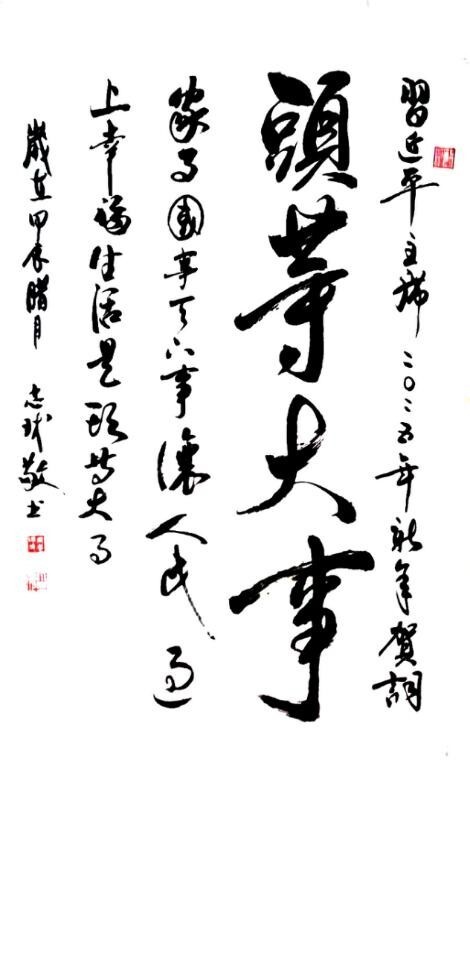 習近平主席二〇二五年新年賀詞
頭等大事
家事國事天下事讓人民過
上幸福生活是頭等大事
歲在甲辰腊月 志 敬书